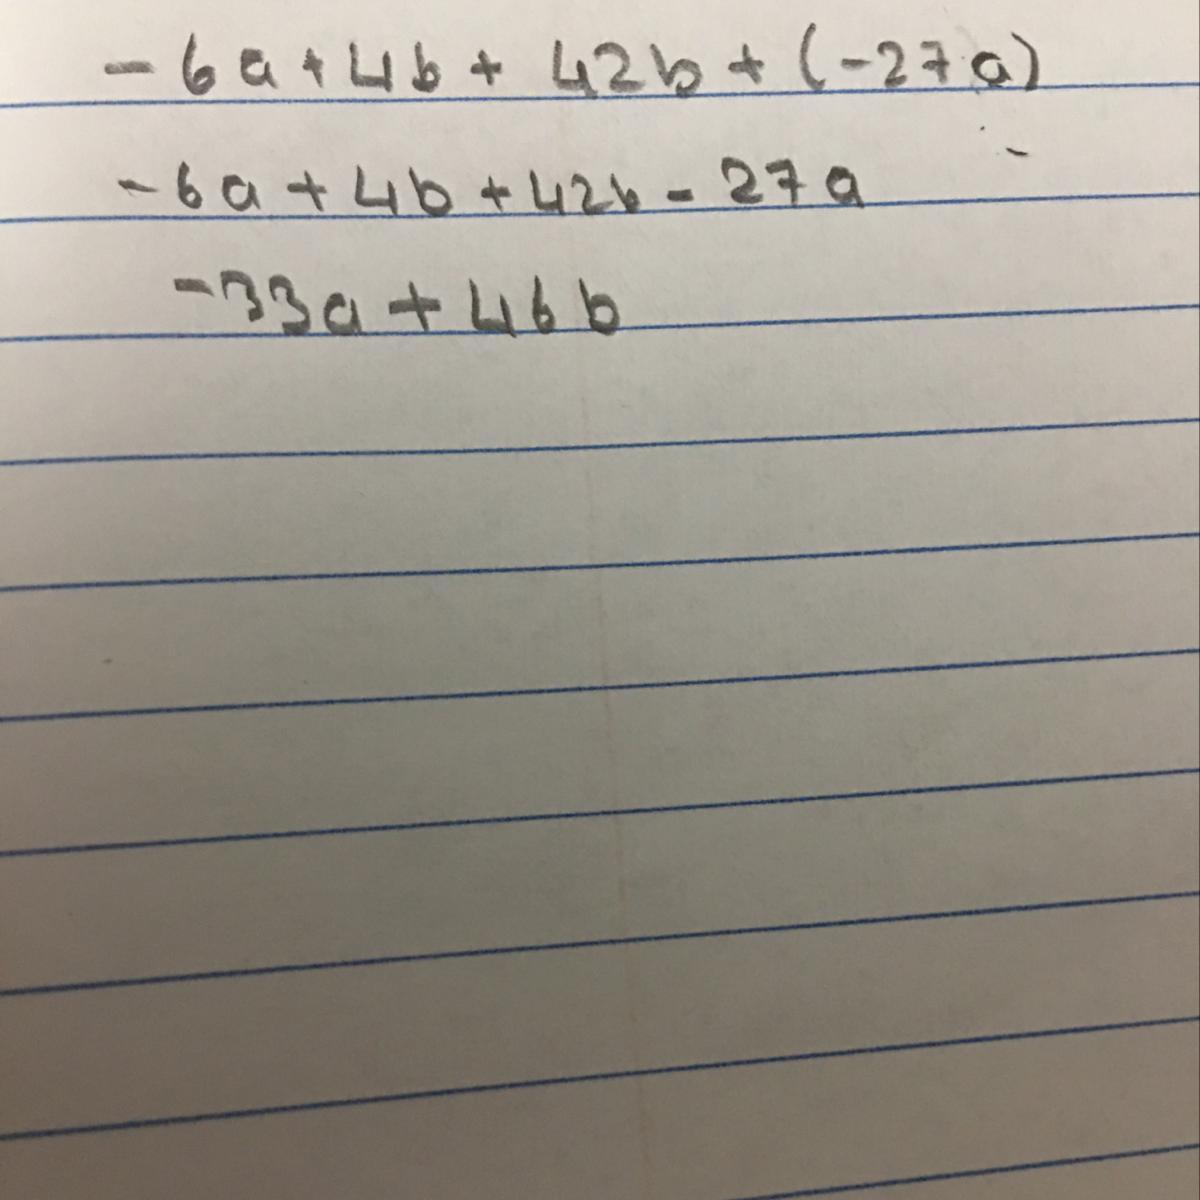 -6a+4b+42b+(-27a)
-6a+4b+42b-27a
-33a+46b